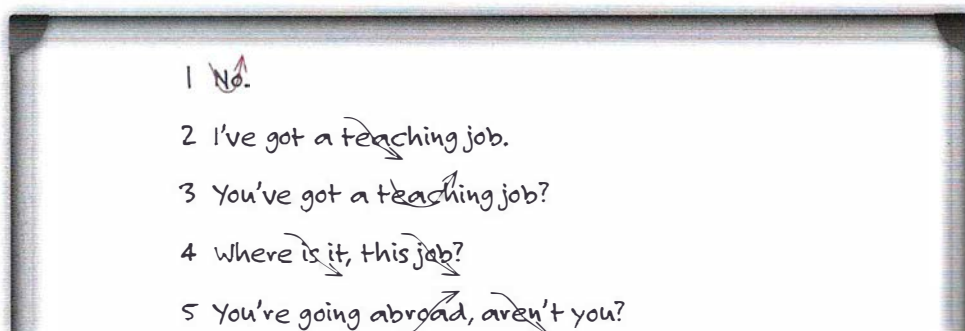 1 No.
2 I've got a teaching job.
3 You've got a teaching job?
4 Where is it, this job?
5 You're going abroad, aren't you?